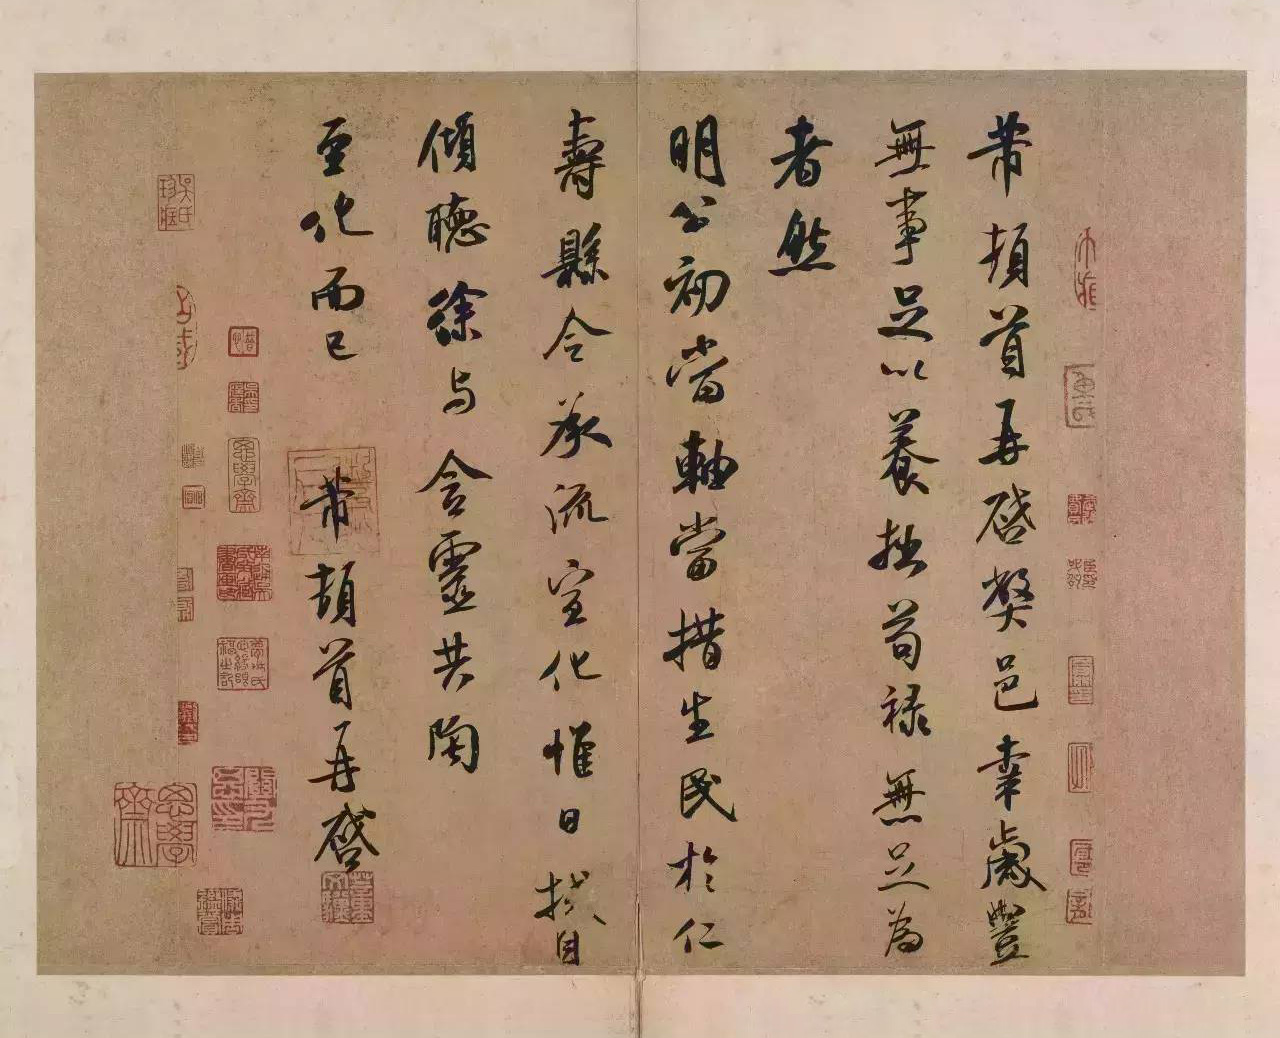 芾頓首再啓弊邑幸歲豐
無事足以養拙苟禄無足為
者然
明公初當軸當措生民於仁
壽縣令承流宣化惟日拭目
傾聽徐與含靈共陶
至化而已
芾頓首再啓